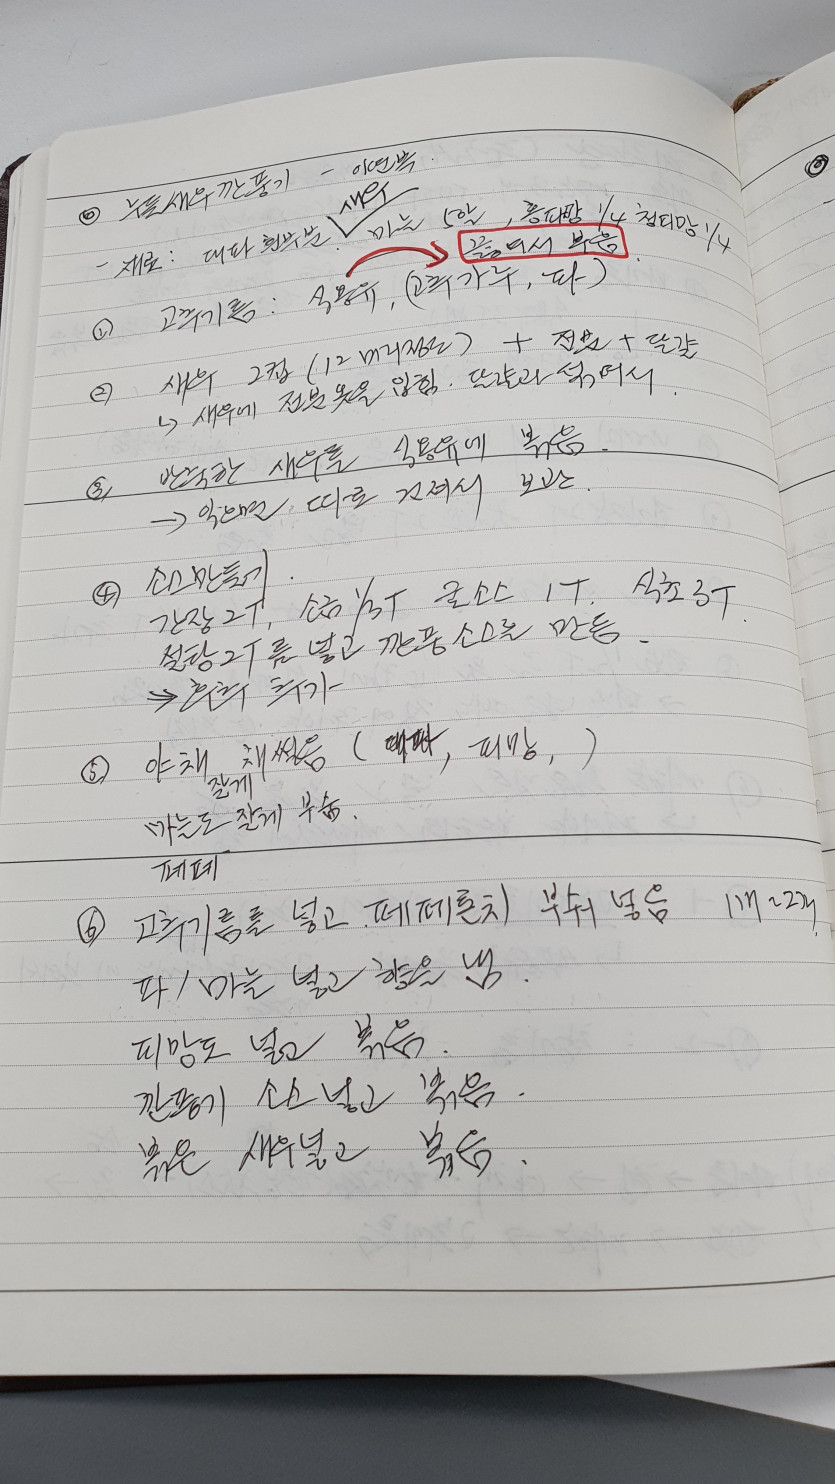 ⑥ 누들새우깐풍기 - 이연복.
새우
- 재료: 대파 흰부분. 마늘 5알, 홍피망 1/4 청피망 1/4
끓여서 부음.
① 고추기름: 식용유, (고추가루, 파)
② 새우 2컵 (12마리정도) + 전분 + 달걀
↳ 새우에 전분 옷을 입힘. 달걀과 섞어서.
③ 반죽한 새우를 식용유에 볶음.
→ 익으면 따로 건져서 보관.
④ 소스만들기.
간장 2T, 소금 1/3T 굴소스 1T. 식초 3T.
설탕 2T를 넣고 깐풍소스를 만듬.
→ 후추 추가
⑤ 야채 채썰음 (대파, 피망, )
잘게
마늘도 잘게 부숨.
페페
⑥ 고추기름를 넣고 페페론치 부숴 넣음 1개~2개.
파/마늘 넣고 향을 냄.
피망도 넣고 볶음.
깐풍기 소스 넣고 볶음.
볶은 새우넣고 볶음.